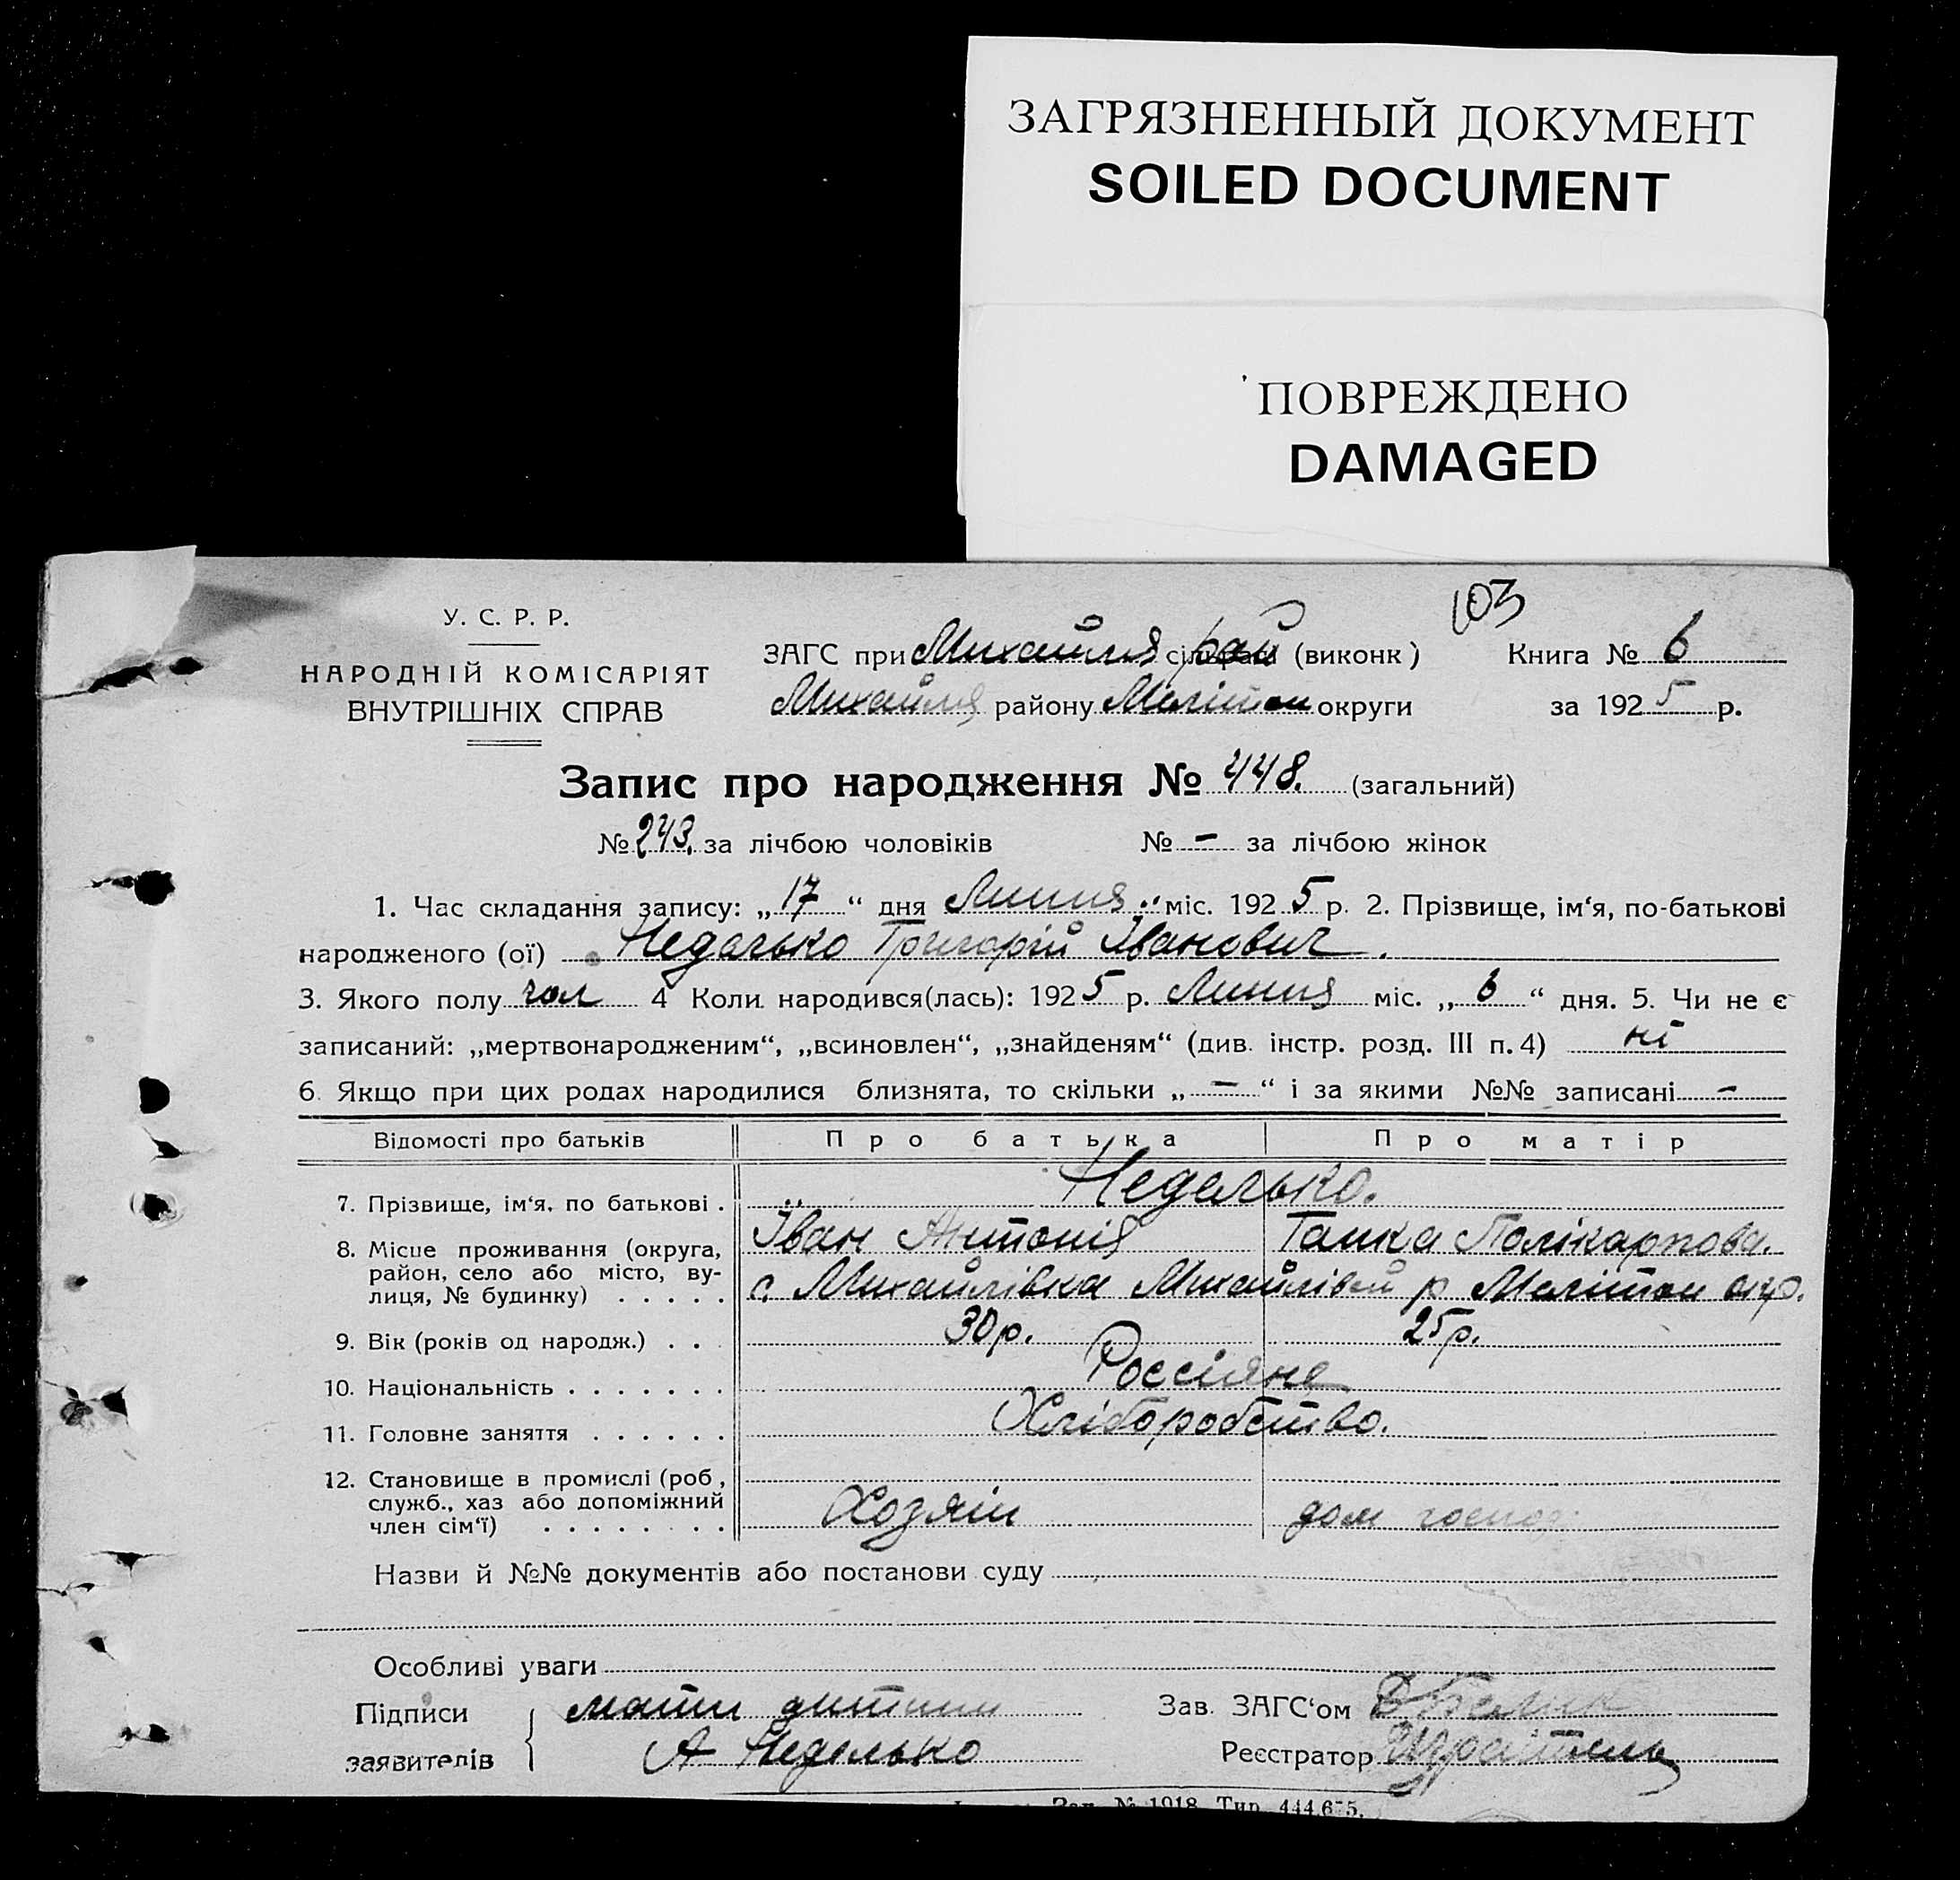 ЗАГРЯЗНЕННЫЙ ДОКУМЕНТ
SOILED DOCUMENT
ПОВРЕЖДЕНО
DAMAGED
103
У. С. Р. Р.
НАРОДНІЙ КОМІСАРІЯТ
ВНУТРІШНІХ СПРАВ
ЗАГС при Михайлів рай (виконк) Книга № 6
Михайлів району Мелітоп округи за 1925 р.
Запис про народження № 448. (загальний)
№ 243. за лічбою чоловіків № — за лічбою жінок
1. Час складання запису: „17“ дня Липня міс. 1925 р. 2. Прізвище, ім‘я, по-батькові
народженого (ої) Неделько Григорій Іванович.
3. Якого полу чол 4 Коли народився(лась): 1925 р. Липня міс. „6“ дня. 5. Чи не є
записаний: „мертвонародженим“, „всиновлен“, „знайденям“ (див. інстр. розд. III п. 4) ні
6. Якщо при цих родах народилися близнята, то скільки „—“ і за якими №№ записані —
Відомості про батьків Про батька Про матір
7. Прізвище, ім‘я, по батькові . Неделько.
Іван Антонів Ганка Полікарпова.
8. Місце проживання (округа,
район, село або місто, ву-
лиця, № будинку) . . . . . с. Михайлівка Михайлівськ р Мелітоп окр.
9. Вік (років од народж.) . . . 30 р. 25 р.
10. Національність . . . . . . . Россіяне
11. Головне заняття . . . . . . Хліборобство.
12. Становище в промислі (роб.,
служб., хаз або допоміжний
член сім‘ї) . . . . . . . . Хозяін дом господ.
Назви й №№ документів або постанови суду
Особливі уваги
Підписи мати дитини Зав. ЗАГС‘ом
заявителів А Неделько Реєстратор
Зап. № 1918 Тир. 444.675.